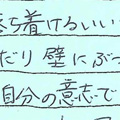 落ち着けるいい
だり壁にぶつ
自分の意志で